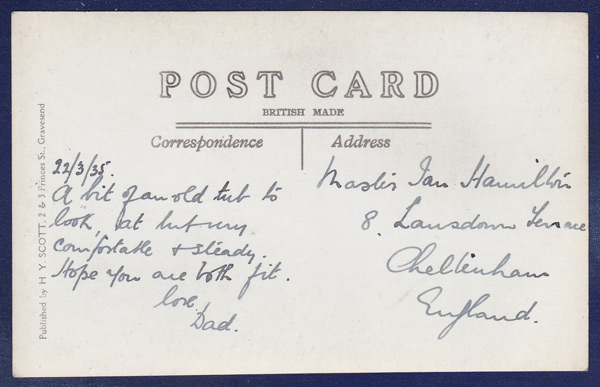 POST CARD
BRITISH MADE
Correspondence
Address
22/3/35.
A bit of an old tub to
look at but very
comfortable & steady.
Hope you are both fit.
love
Dad.
Master Ian Hamilton
8. Lansdown Terrace
Cheltenham
England.
Published by H. Y. SCOTT, 2 & 3 Princes St., Gravesend